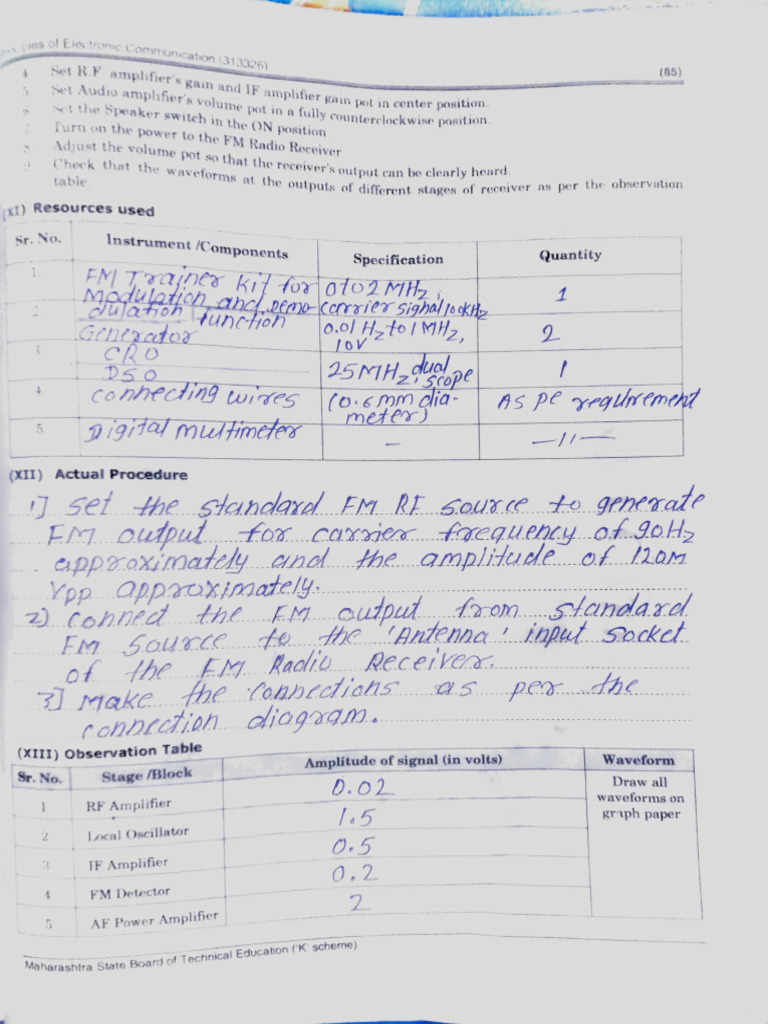 ples of Electronic Communication (313326)
(85)
4 Set R F amplifier's gain and IF amplifier gain pot in center position.
5. Set Audio amplifier's volume pot in a fully counterclockwise position.
6 Set the Speaker switch in the ON position
7 Turn on the power to the FM Radio Receiver
8. Adjust the volume pot so that the receiver's output can be clearly heard.
9 Check that the waveforms at the outputs of different stages of receiver as per the observation
table.
(XI) Resources used
Sr. No. Instrument /Components Specification Quantity
1. FM Trainer kit for 0 to 2 MHz, 1
Modulation and Demo carrier signal 10kHz
2 dulation function 0.01 Hz to 1 MHz, 2
Generator 10V
3 CRO 25 MHz, dual 1
DSO scope
4 connecting wires (0.6 mm dia- As pe requirement
meter)
5 Digital multimeter — —11—
(XII) Actual Procedure
1] set the standard FM RF source to generate
FM output for carrier frequency of 90Hz
approximately and the amplitude of 120m
Vpp approximately.
2) connect the FM output from standard
FM Source to the 'Antenna' input socket
of the FM Radio Receiver.
3] Make the connections as per the
connection diagram.
(XIII) Observation Table
Sr. No. Stage /Block Amplitude of signal (in volts) Waveform
1 RF Amplifier 0.02 Draw all
waveforms on
graph paper
2 Local Oscillator 1.5
3 IF Amplifier 0.5
4 FM Detector 0.2
5 AF Power Amplifier 2
Maharashtra State Board of Technical Education ('K' scheme)